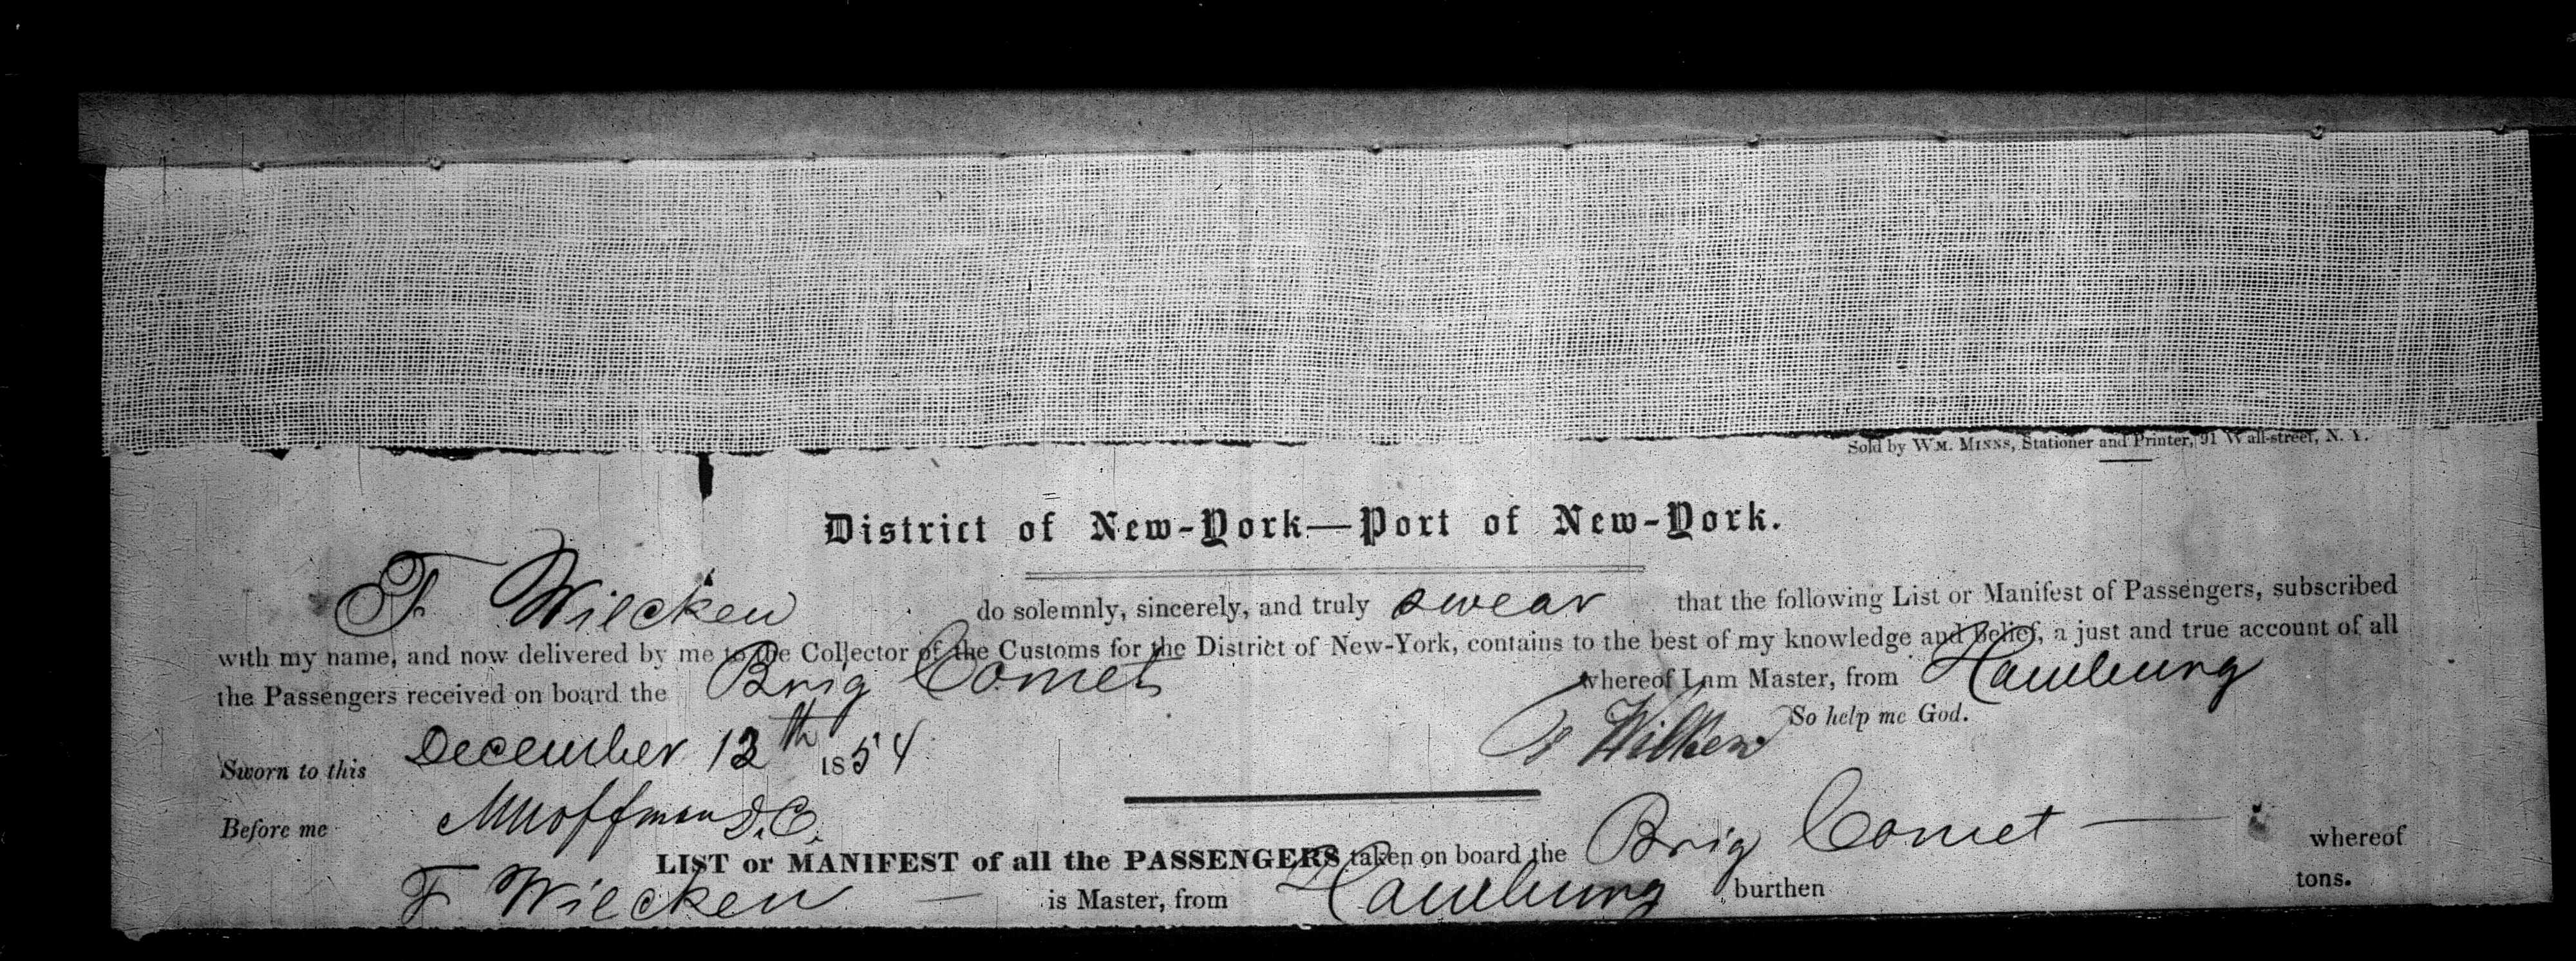 Sold by WM. MINNS, Stationer and Printer, 91 Wall-street, N. Y.
District of New-York—Port of New-York.
F Wilcken do solemnly, sincerely, and truly swear that the following List or Manifest of Passengers, subscribed
with my name, and now delivered by me to the Collector of the Customs for the District of New-York, contains to the best of my knowledge and belief, a just and true account of all
the Passengers received on board the Brig Comet whereof I am Master, from Hamburg
So help me God.
F Wilken
Sworn to this December 13th 1854
Before me MHoffman D.C.
LIST or MANIFEST of all the PASSENGERS taken on board the Brig Comet whereof
F Wilcken is Master, from Hamburg burthen tons.